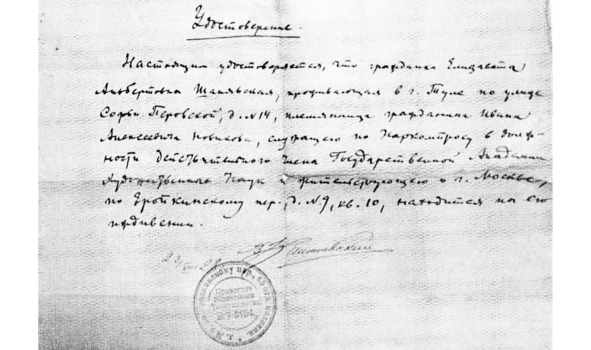 Удостоверение.
Настоящим удостоверяется, что гражданка Елизавета
Альбертовна Шаняьская, проживающая в г. Туле по улице
Софьи Перовской, д. №14, племянница гражданина Ивана
Алексеевича Новикова, служащего по Наркомпросу в долж-
ности действительного члена Государственной Академии
Художественных Наук и жительствующего в г. Москве,
по пер., д. №9, кв. 10, находится на его
иждивении.